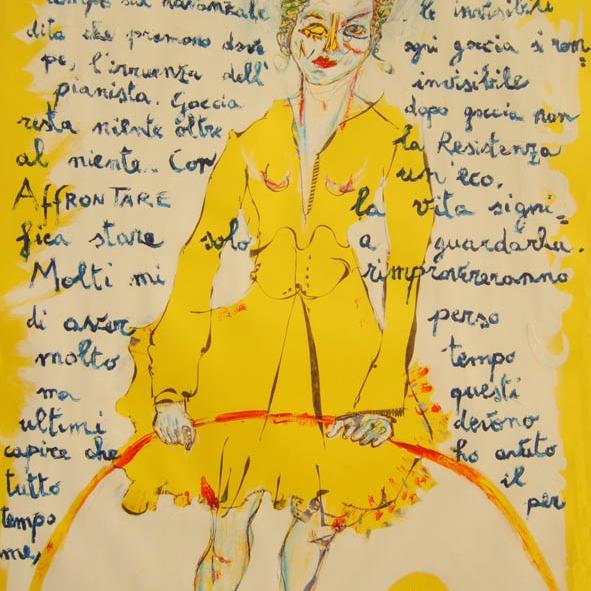 tempo sul davanzale le invisibili
dita che premono dove ogni goccia si rom=
pe, l'irruenza dell' invisibile
pianista. Goccia dopo goccia non
resta niente oltre la Resistenza
al niente.. Con un'eco.
AFFRONTARE la vita signi=
fica stare solo a guardarla.
Molti mi rimprovereranno
di aver perso
molto tempo
ma questi
ultimi devono
capire che ho avuto
tutto il
tempo per
me,